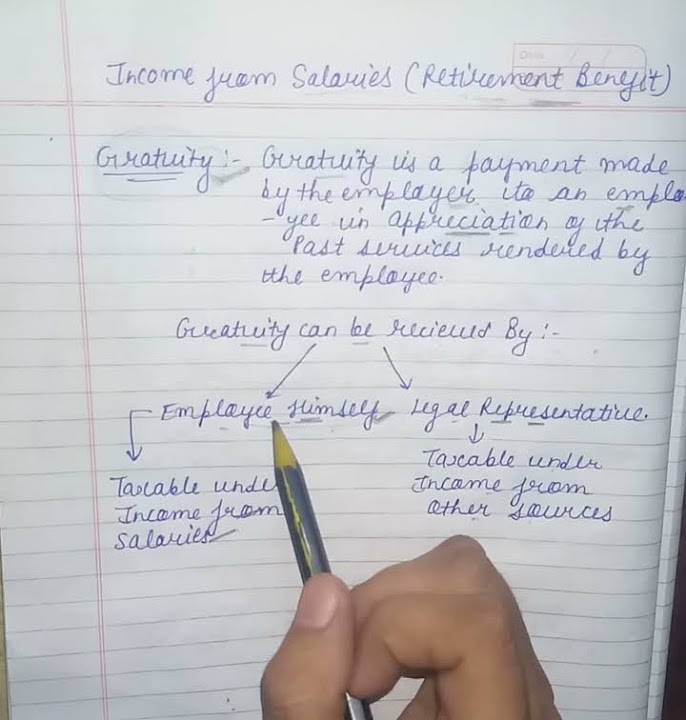 Date
Income from Salaries (Retirement Benefit)
Gratuity :- Gratuity is a payment made
by the employer to an emplo
-yee in appreciation of the
Past services rendered by
the employee.
Gratuity can be recieved By :-
Employee Himself Legal Representative.
Taxable unde
Income from
Salaries
Taxable under
Income from
other sources